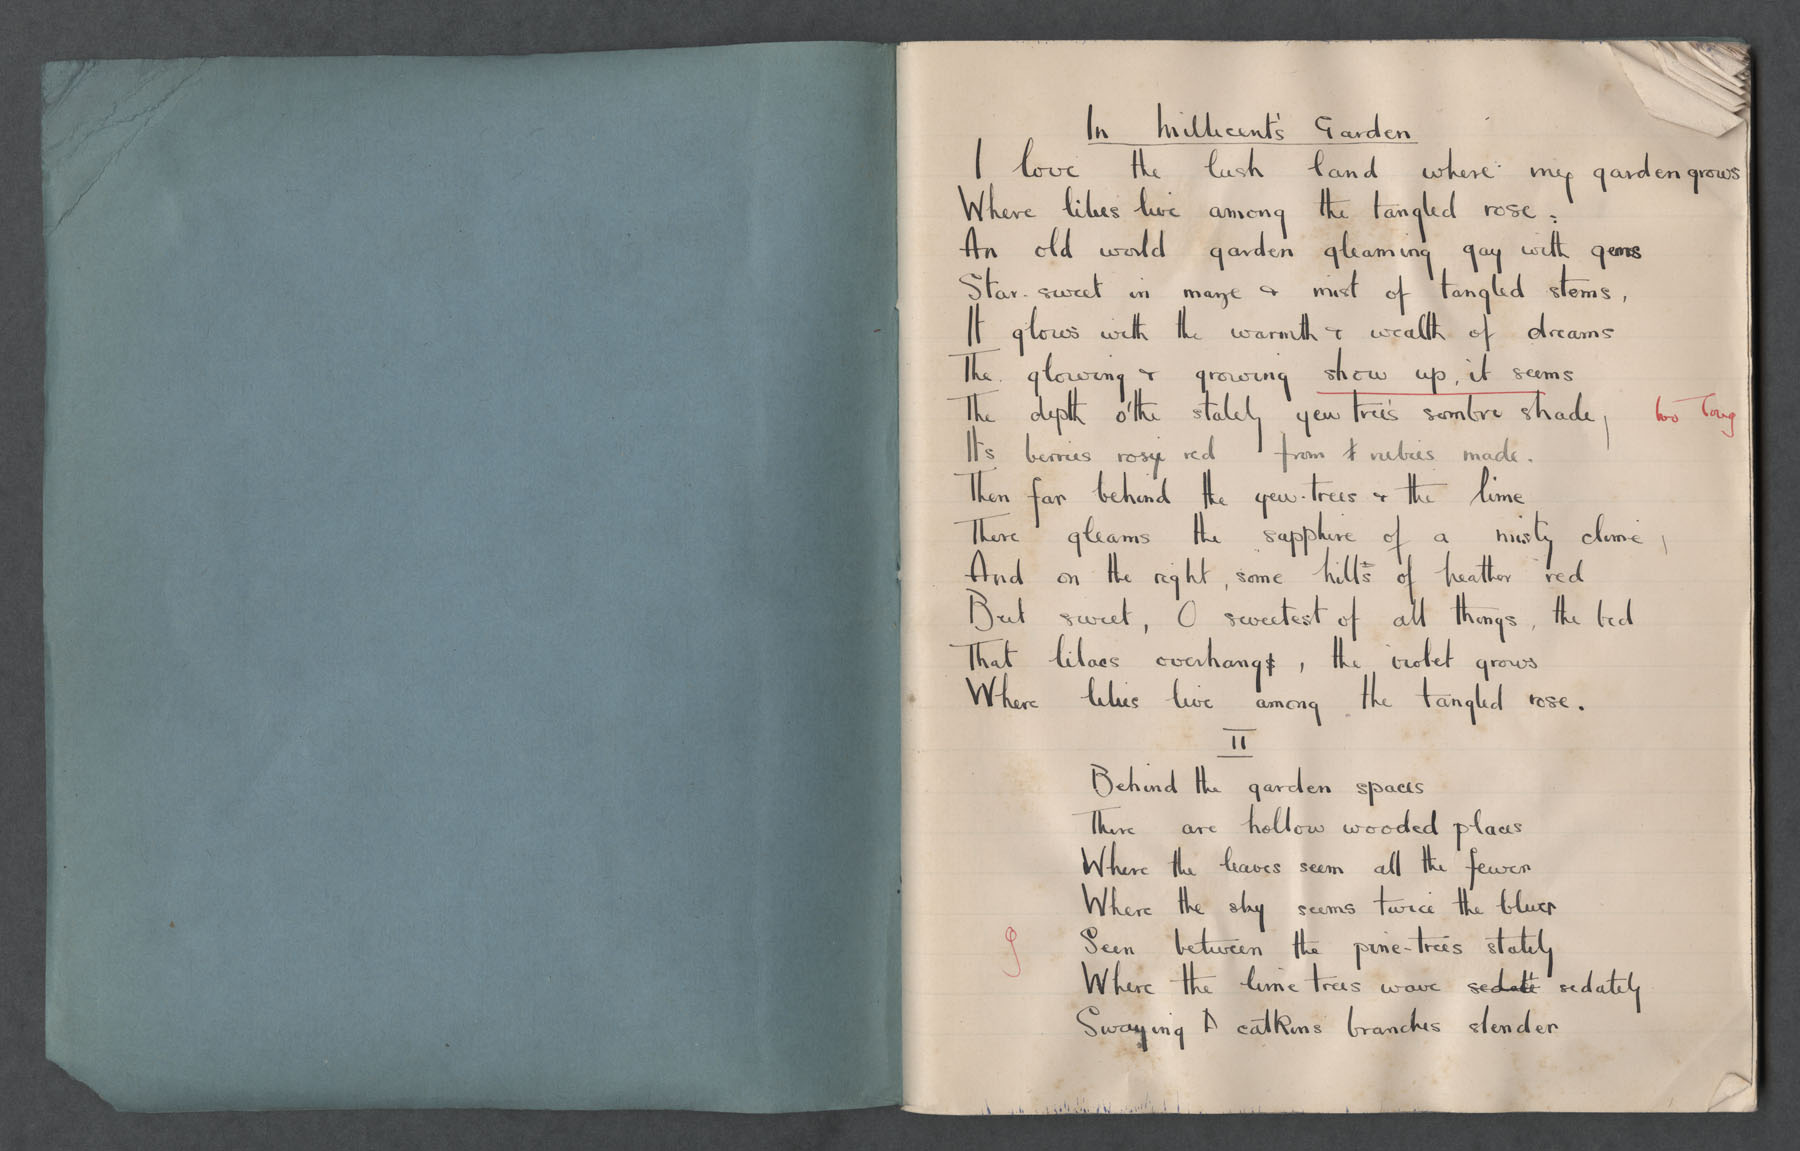 In Millicent's Garden
I love the lush land where my garden grows
Where lilies live among the tangled rose;
An old world garden gleaming gay with gems
Star-sweet in maze & mist of tangled stems,
It glows with the warmth & wealth of dreams
The glowing & growing show up, it seems
The depth o'the stately yew tree's sombre shade, too long
Its berries rosy red from rubies made.
Then far behind the yew-trees & the lime
There gleams the sapphire of a misty clime,
And on the right, some hills of heather red
But sweet, O sweetest of all things, the bed
That lilacs overhang, the violet grows
Where lilies live among the tangled rose.
II
Behind the garden spaces
There are hollow wooded places
Where the leaves seem all the fewer
Where the sky seems twice the bluer
Seen between the pine-trees stately
Where the lime trees wave sedate sedately
Swaying catkins branches slender